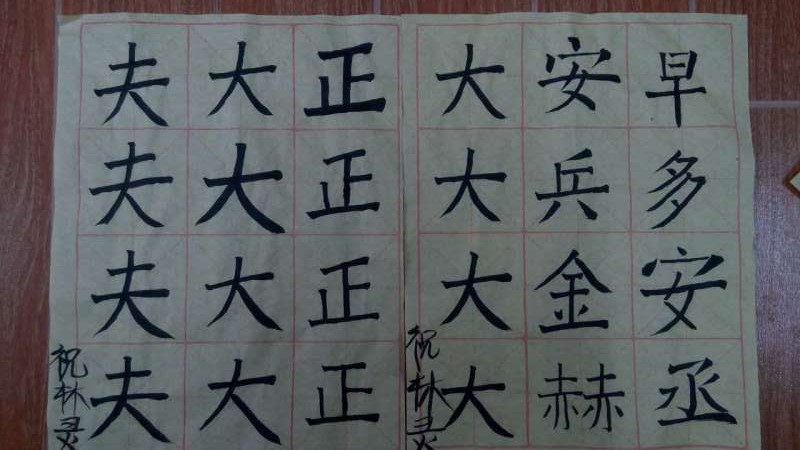 早多安丞
安兵金赫
大大大大
祝林灵
正正正正
大大大大
夫夫夫夫
祝林灵